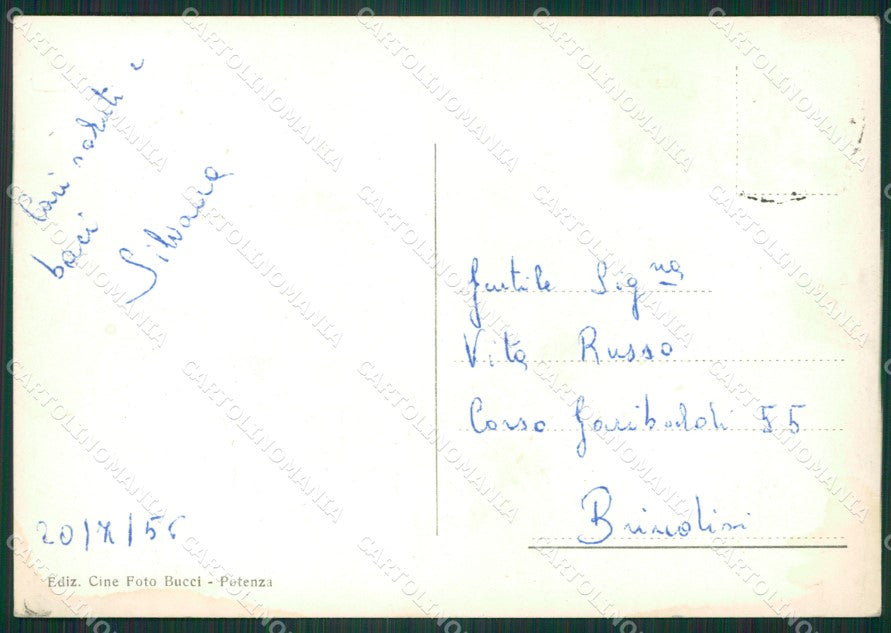 Cari saluti e
baci
Silvana
20/X/56
Ediz. Cine Foto Bucci - Potenza
Gentile Sig.na
Vita Russo
Corso Garibaldi 55
Brindisi
CARTOLINOMANIA